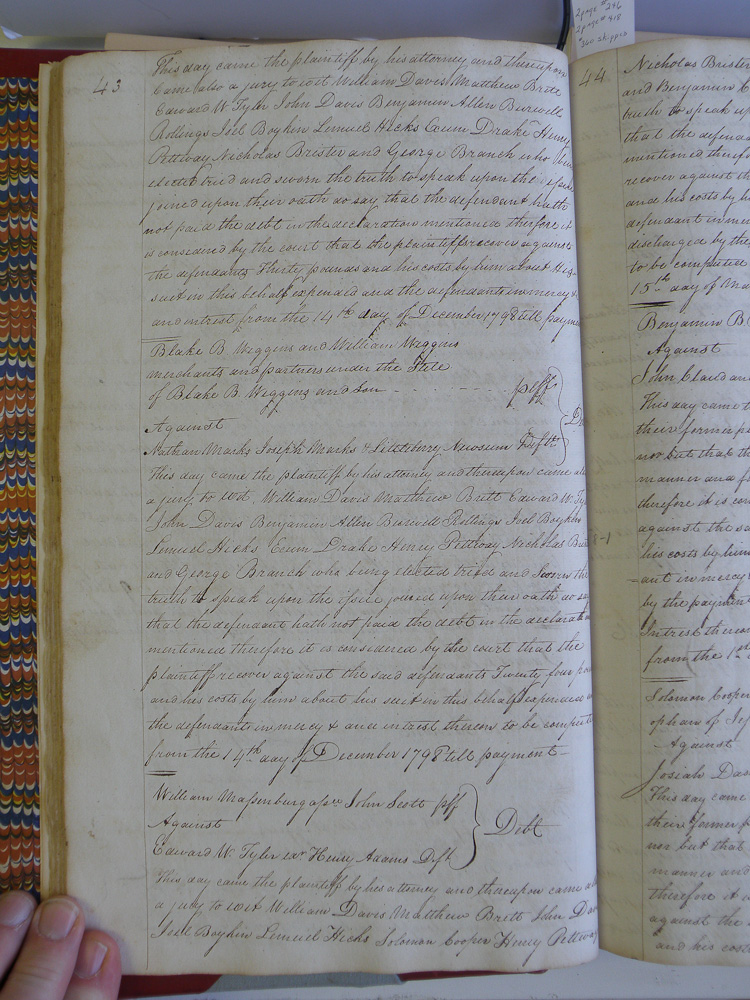 2 page # 246
2 page # 418
"300 shipped
43
This day came the plaintiff by his attorney and thereupon
Came also a jury to wit William Davis Matthew Britt
Edward W. Tyler John Davis Benjamin Allen Burwell
Rollings Joel Boykin Lemuel Hicks Exum Drake Henry
Pettway Nicholas Brister and George Branch who being
elected tried and sworn the truth to speak upon the issue
joined upon their oath do say that the defendant hath
not paid the debt in the declaration mentioned therefore it
is considered by the court that the plaintiff recover against
the defendants Thirty pounds and his costs by him about his
suit in this behalf expended and the defendants in mercy &
and intrest from the 14th day of December 1798 till payment
Blake B Wiggins and William Wiggins
merchants and partners under the Stile
of Blake B. Wiggins and Son plff
Against
Nathan Marks Joseph Marks & Littleberry Newsum Defts
This day came the plaintiff by his attorney and thereupon came also
a jury to wit William Davis Matthew Britt Edward W. Tyler
John Davis Benjamin Allen Burwell Rollings Joel Boykin
Lemuel Hicks Exum Drake Henry Pettway Nicholas Brister
and George Branch who being elected tried and Sworn the
truth to speak upon the issue joined upon their oath do say
that the defendant hath not paid the debt in the declaration
mentioned therefore it is considered by the court that the
plaintiff recover against the said defendants Twenty four
and his costs by him about his suit in this behalf expended and
the defendants in mercy & and intrest thereon to be computed
from the 14th day of December 1798 till payment
William Massenburg John Scott plff
Against
Edward W. Tyler exr Henry Adams Deft
Debt
This day came the plaintiff by his attorney and thereupon came also
a jury to wit William Davis Matthew Britt John Davis
Joel Boykin Lemuel Hicks Solomon Cooper Henry Pettway
44
Nicholas Brister
and Benjamin
truth to speak
that the defendant
mentioned therefore
recover against the
and his costs by
defendant in mercy
discharged by the
to be computed
15th day of
Benjamin
Against
John Claud and
This day came
their former
nor but that
manner and
therefore it is
against the
his costs by him
in mercy
by the payment
Intrest thereon
from the 1st
Solomon Cooper
ophan of
Against
Josiah
This day came
their former
nor but that
manner and
therefore it
against the
and his costs